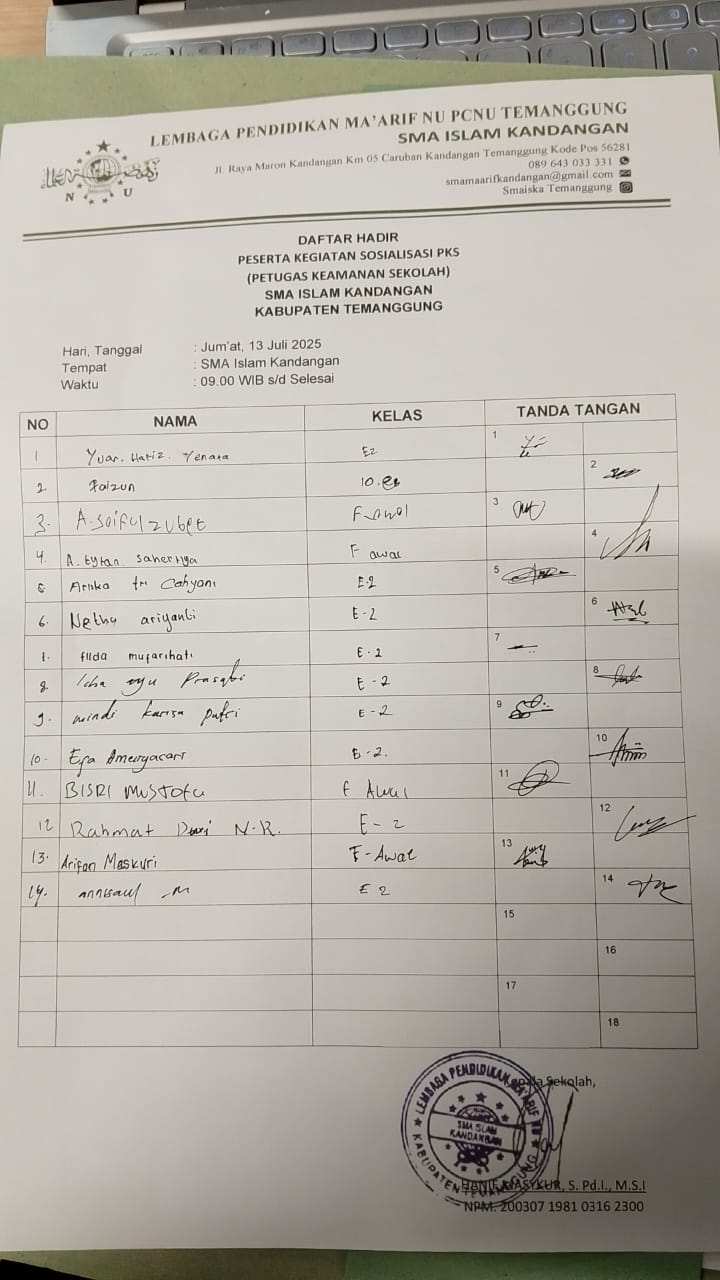 LEMBAGA PENDIDIKAN MA'ARIF NU PCNU TEMANGGUNG
SMA ISLAM KANDANGAN
Jl. Raya Maron Kandangan Km 05 Caruban Kandangan Temanggung Kode Pos 56281
089 643 033 331
smamaarifkandangan@gmail.com
Smaiska Temanggung
N U
DAFTAR HADIR
PESERTA KEGIATAN SOSIALISASI PKS
(PETUGAS KEAMANAN SEKOLAH)
SMA ISLAM KANDANGAN
KABUPATEN TEMANGGUNG
Hari, Tanggal : Jum'at, 13 Juli 2025
Tempat : SMA Islam Kandangan
Waktu : 09.00 WIB s/d Selesai
NO NAMA KELAS TANDA TANGAN
1 Yuar. Hafiz. Yenata E2 1
2. Faizun 10. 2
3. A. Saiful zubet F-awal 3
4. A. tyran sahertiya F awal 4
5 Arnika tri Cahyani E-2 5
6. Netha ariyanti E-2 6
7. filda mufarihati E-2 7
8. Icha ayu Prasasti E-2 8
9. windi karisa putri E-2 9
10. E-2. 10
11. BISRI MUSTOFA F Awal 11
12 Rahmat Dwi N.R. E-2 12
13. Arifan Maskuri F-Awal 13
14. annisaul M E 2 14
15
16
17
18
Kepala Sekolah,
LEMBAGA PENDIDIKAN MA'ARIF NU
SMA ISLAM
KANDANGAN
KABUPATEN TEMANGGUNG
HANIF MASYKUR, S. Pd.I., M.S.I
NPM. 200307 1981 0316 2300